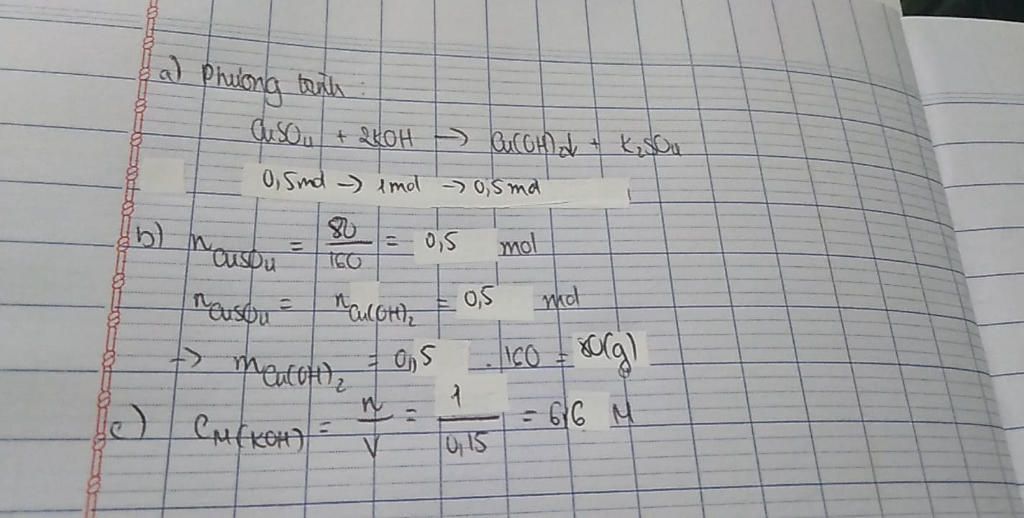 a) Phương trình :
CuSO₄ + 2KOH → Cu(OH)₂↓ + K₂SO₄
0,5mol → 1mol → 0,5mol
b) nCuSO₄ = 80/160 = 0,5 mol
nCuSO₄ = nCu(OH)₂ = 0,5 mol
→ mCu(OH)₂ = 0,5 . 160 = 80(g)
c) CM(KOH) = n/V = 1/0,15 = 6,6 M